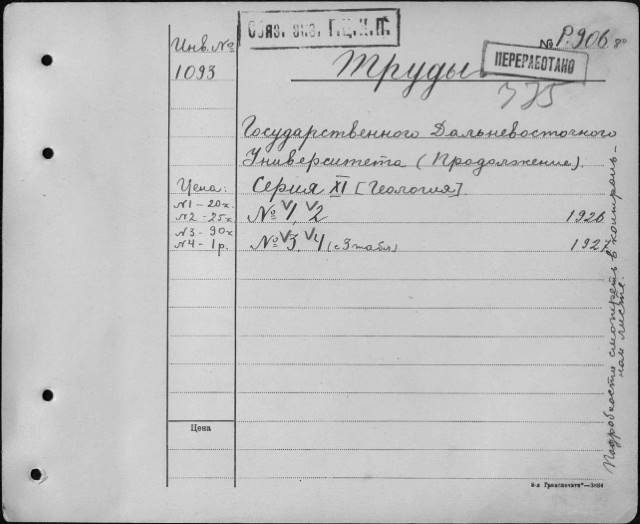 Обяз. экз. Г.Ц.К.П.
Инв. №
1093
№ Р.906. 8°
ПЕРЕРАБОТАНО
Труды
Государственного Дальневосточного
Университета (Продолжение).
Цена:
Серия XI [Геология]
№1 - 20к.
№2 - 25к
№ V1, V2 1926
№3 - 90к
№4 - 1 р.
№ V3, V4 (с 3 табл) 1927
Подробности смотреть в контроль-
ном листе.
Цена